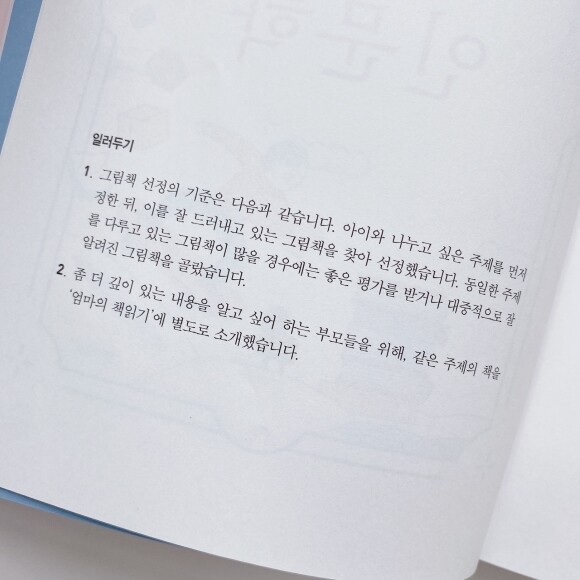 일러두기
1. 그림책 선정의 기준은 다음과 같습니다. 아이와 나누고 싶은 주제를 먼저
정한 뒤, 이를 잘 드러내고 있는 그림책을 찾아 선정했습니다. 동일한 주제
를 다루고 있는 그림책이 많을 경우에는 좋은 평가를 받거나 대중적으로 잘
알려진 그림책을 골랐습니다.
2. 좀 더 깊이 있는 내용을 알고 싶어 하는 부모들을 위해, 같은 주제의 책을
‘엄마의 책읽기’에 별도로 소개했습니다.